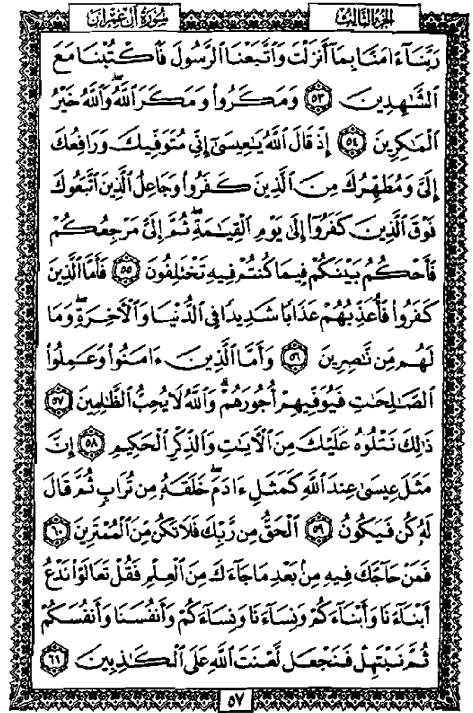 الجزء الثالث
سورة آل عمران
رَبَّنَآ ءَامَنَّا بِمَآ أَنزَلْتَ وَاتَّبَعْنَا الرَّسُولَ فَاكْتُبْنَا مَعَ
الشَّٰهِدِينَ ٥٣ وَمَكَرُوا وَمَكَرَ اللَّهُ وَاللَّهُ خَيْرُ
الْمَاكِرِينَ ٥٤ إِذْ قَالَ اللَّهُ يَاعِيسَىٰ إِنِّي مُتَوَفِّيكَ وَرَافِعُكَ
إِلَيَّ وَمُطَهِّرُكَ مِنَ الَّذِينَ كَفَرُوا وَجَاعِلُ الَّذِينَ اتَّبَعُوكَ
فَوْقَ الَّذِينَ كَفَرُوا إِلَىٰ يَوْمِ الْقِيَامَةِ ثُمَّ إِلَيَّ مَرْجِعُكُمْ
فَأَحْكُمُ بَيْنَكُمْ فِيمَا كُنتُمْ فِيهِ تَخْتَلِفُونَ ٥٥ فَأَمَّا الَّذِينَ
كَفَرُوا فَأُعَذِّبُهُمْ عَذَابًا شَدِيدًا فِي الدُّنْيَا وَالْآخِرَةِ وَمَا
لَهُم مِّن نَّاصِرِينَ ٥٦ وَأَمَّا الَّذِينَ ءَامَنُوا وَعَمِلُوا
الصَّالِحَاتِ فَيُوَفِّيهِمْ أُجُورَهُمْ وَاللَّهُ لَا يُحِبُّ الظَّالِمِينَ ٥٧
ذَٰلِكَ نَتْلُوهُ عَلَيْكَ مِنَ الْآيَاتِ وَالذِّكْرِ الْحَكِيمِ ٥٨ إِنَّ
مَثَلَ عِيسَىٰ عِندَ اللَّهِ كَمَثَلِ ءَادَمَ خَلَقَهُ مِن تُرَابٍ ثُمَّ قَالَ
لَهُ كُن فَيَكُونُ ٥٩ الْحَقُّ مِن رَّبِّكَ فَلَا تَكُن مِّنَ الْمُمْتَرِينَ ٦٠
فَمَنْ حَاجَّكَ فِيهِ مِن بَعْدِ مَا جَاءَكَ مِنَ الْعِلْمِ فَقُلْ تَعَالَوْا نَدْعُ
أَبْنَاءَنَا وَأَبْنَاءَكُمْ وَنِسَاءَنَا وَنِسَاءَكُمْ وَأَنفُسَنَا وَأَنفُسَكُمْ
ثُمَّ نَبْتَهِلْ فَنَجْعَل لَّعْنَتَ اللَّهِ عَلَى الْكَاذِبِينَ ٦١
٥٧